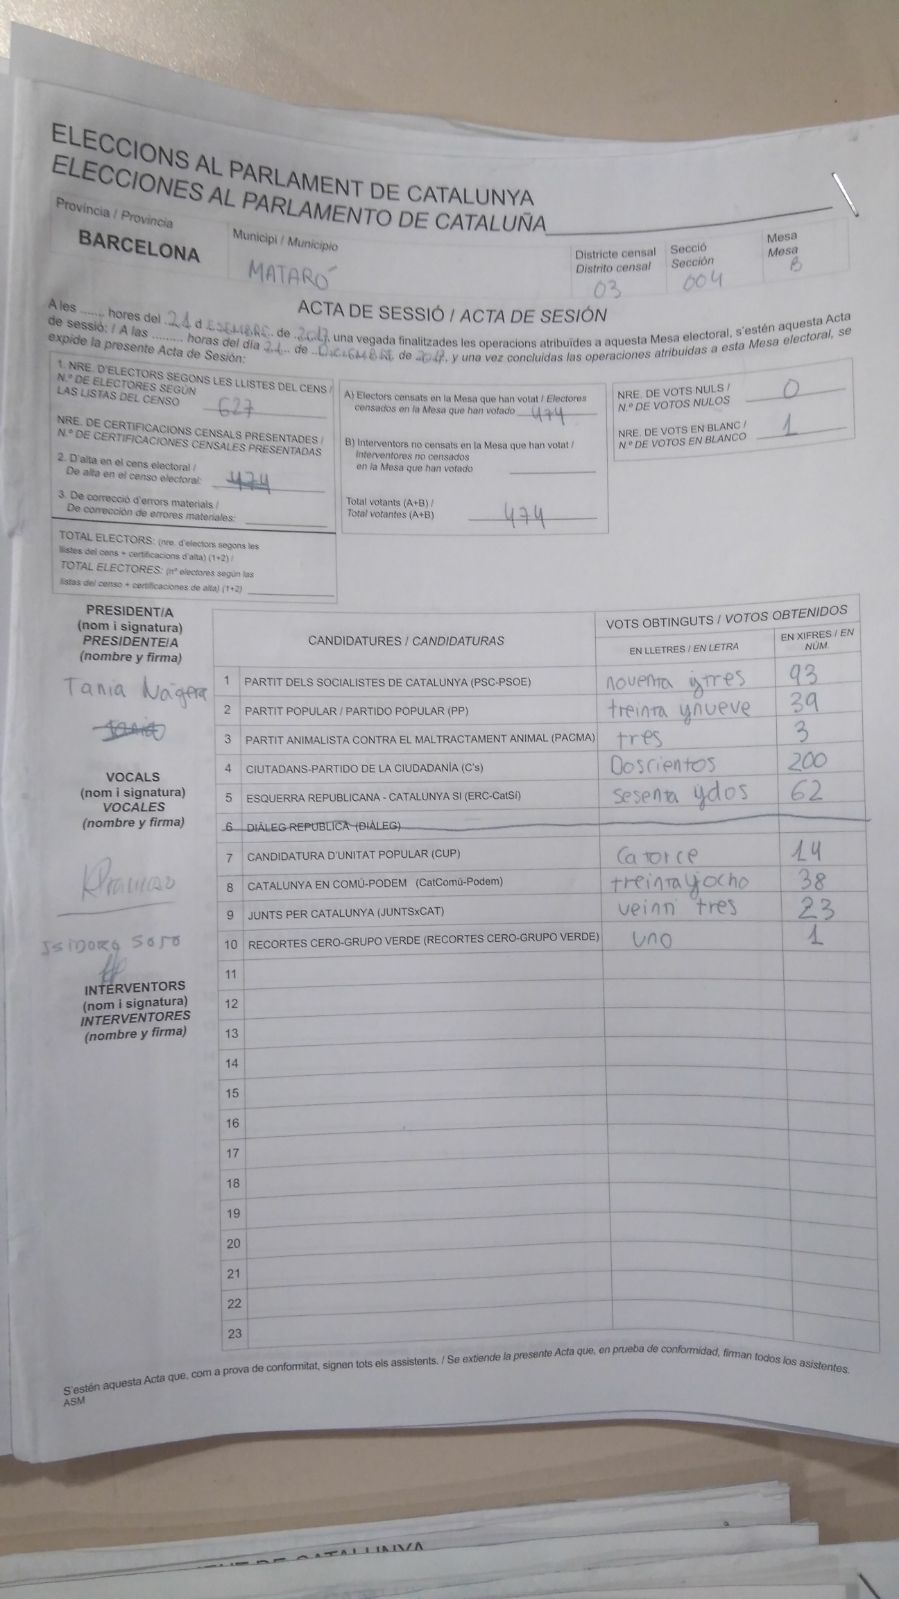 ELECCIONS AL PARLAMENT DE CATALUNYA
ELECCIONES AL PARLAMENTO DE CATALUÑA
Província / Provincia
BARCELONA
Municipi / Municipio
MATARÓ
Districte censal
Distrito censal
03
Secció
Sección
004
Mesa
Mesa
B
ACTA DE SESSIÓ / ACTA DE SESIÓN
A les ....... hores del 21 d ESEMBRE de 2017, una vegada finalitzades les operacions atribuïdes a aquesta Mesa electoral, s'estén aquesta Acta
de sessió: / A las ......... horas del día 21 de DICIEMBRE de 2017, y una vez concluidas las operaciones atribuidas a esta Mesa electoral, se
expide la presente Acta de Sesión:
1. NRE. D'ELECTORS SEGONS LES LLISTES DEL CENS /
N.º DE ELECTORES SEGÚN
LAS LISTAS DEL CENSO 627
NRE. DE CERTIFICACIONS CENSALS PRESENTADES /
N.º DE CERTIFICACIONES CENSALES PRESENTADAS
2. D'alta en el cens electoral /
De alta en el censo electoral: 474
3. De correcció d'errors materials /
De corrección de errores materiales:
TOTAL ELECTORS: (nre. d'electors segons les
llistes del cens + certificacions d'alta) (1+2) /
TOTAL ELECTORES: (nº electores según las
listas del censo + certificaciones de alta) (1+2)
A) Electors censats en la Mesa que han votat / Electores
censados en la Mesa que han votado 474
B) Interventors no censats en la Mesa que han votat /
Interventores no censados
en la Mesa que han votado
Total votants (A+B) /
Total votantes (A+B) 474
NRE. DE VOTS NULS /
N.º DE VOTOS NULOS 0
NRE. DE VOTS EN BLANC /
N.º DE VOTOS EN BLANCO 1
PRESIDENT/A
(nom i signatura)
PRESIDENTE/A
(nombre y firma)
Tania Nágera
Tania
VOCALS
(nom i signatura)
VOCALES
(nombre y firma)
ISIDORO SOTO
INTERVENTORS
(nom i signatura)
INTERVENTORES
(nombre y firma)
CANDIDATURES / CANDIDATURAS
VOTS OBTINGUTS / VOTOS OBTENIDOS
EN LLETRES / EN LETRA
EN XIFRES / EN
NÚM.
1 PARTIT DELS SOCIALISTES DE CATALUNYA (PSC-PSOE) noventa ytres 93
2 PARTIT POPULAR / PARTIDO POPULAR (PP) treinta ynueve 39
3 PARTIT ANIMALISTA CONTRA EL MALTRACTAMENT ANIMAL (PACMA) tres 3
4 CIUTADANS-PARTIDO DE LA CIUDADANÍA (C's) Doscientos 200
5 ESQUERRA REPUBLICANA - CATALUNYA SI (ERC-CatSí) sesenta ydos 62
6 DIÀLEG REPUBLICÀ (DIÀLEG)
7 CANDIDATURA D'UNITAT POPULAR (CUP) catorce 14
8 CATALUNYA EN COMÚ-PODEM (CatComú-Podem) treintayocho 38
9 JUNTS PER CATALUNYA (JUNTSxCAT) veinti tres 23
10 RECORTES CERO-GRUPO VERDE (RECORTES CERO-GRUPO VERDE) uno 1
11
12
13
14
15
16
17
18
19
20
21
22
23
S'estén aquesta Acta que, com a prova de conformitat, signen tots els assistents. / Se extiende la presente Acta que, en prueba de conformidad, firman todos los asistentes.
ASM